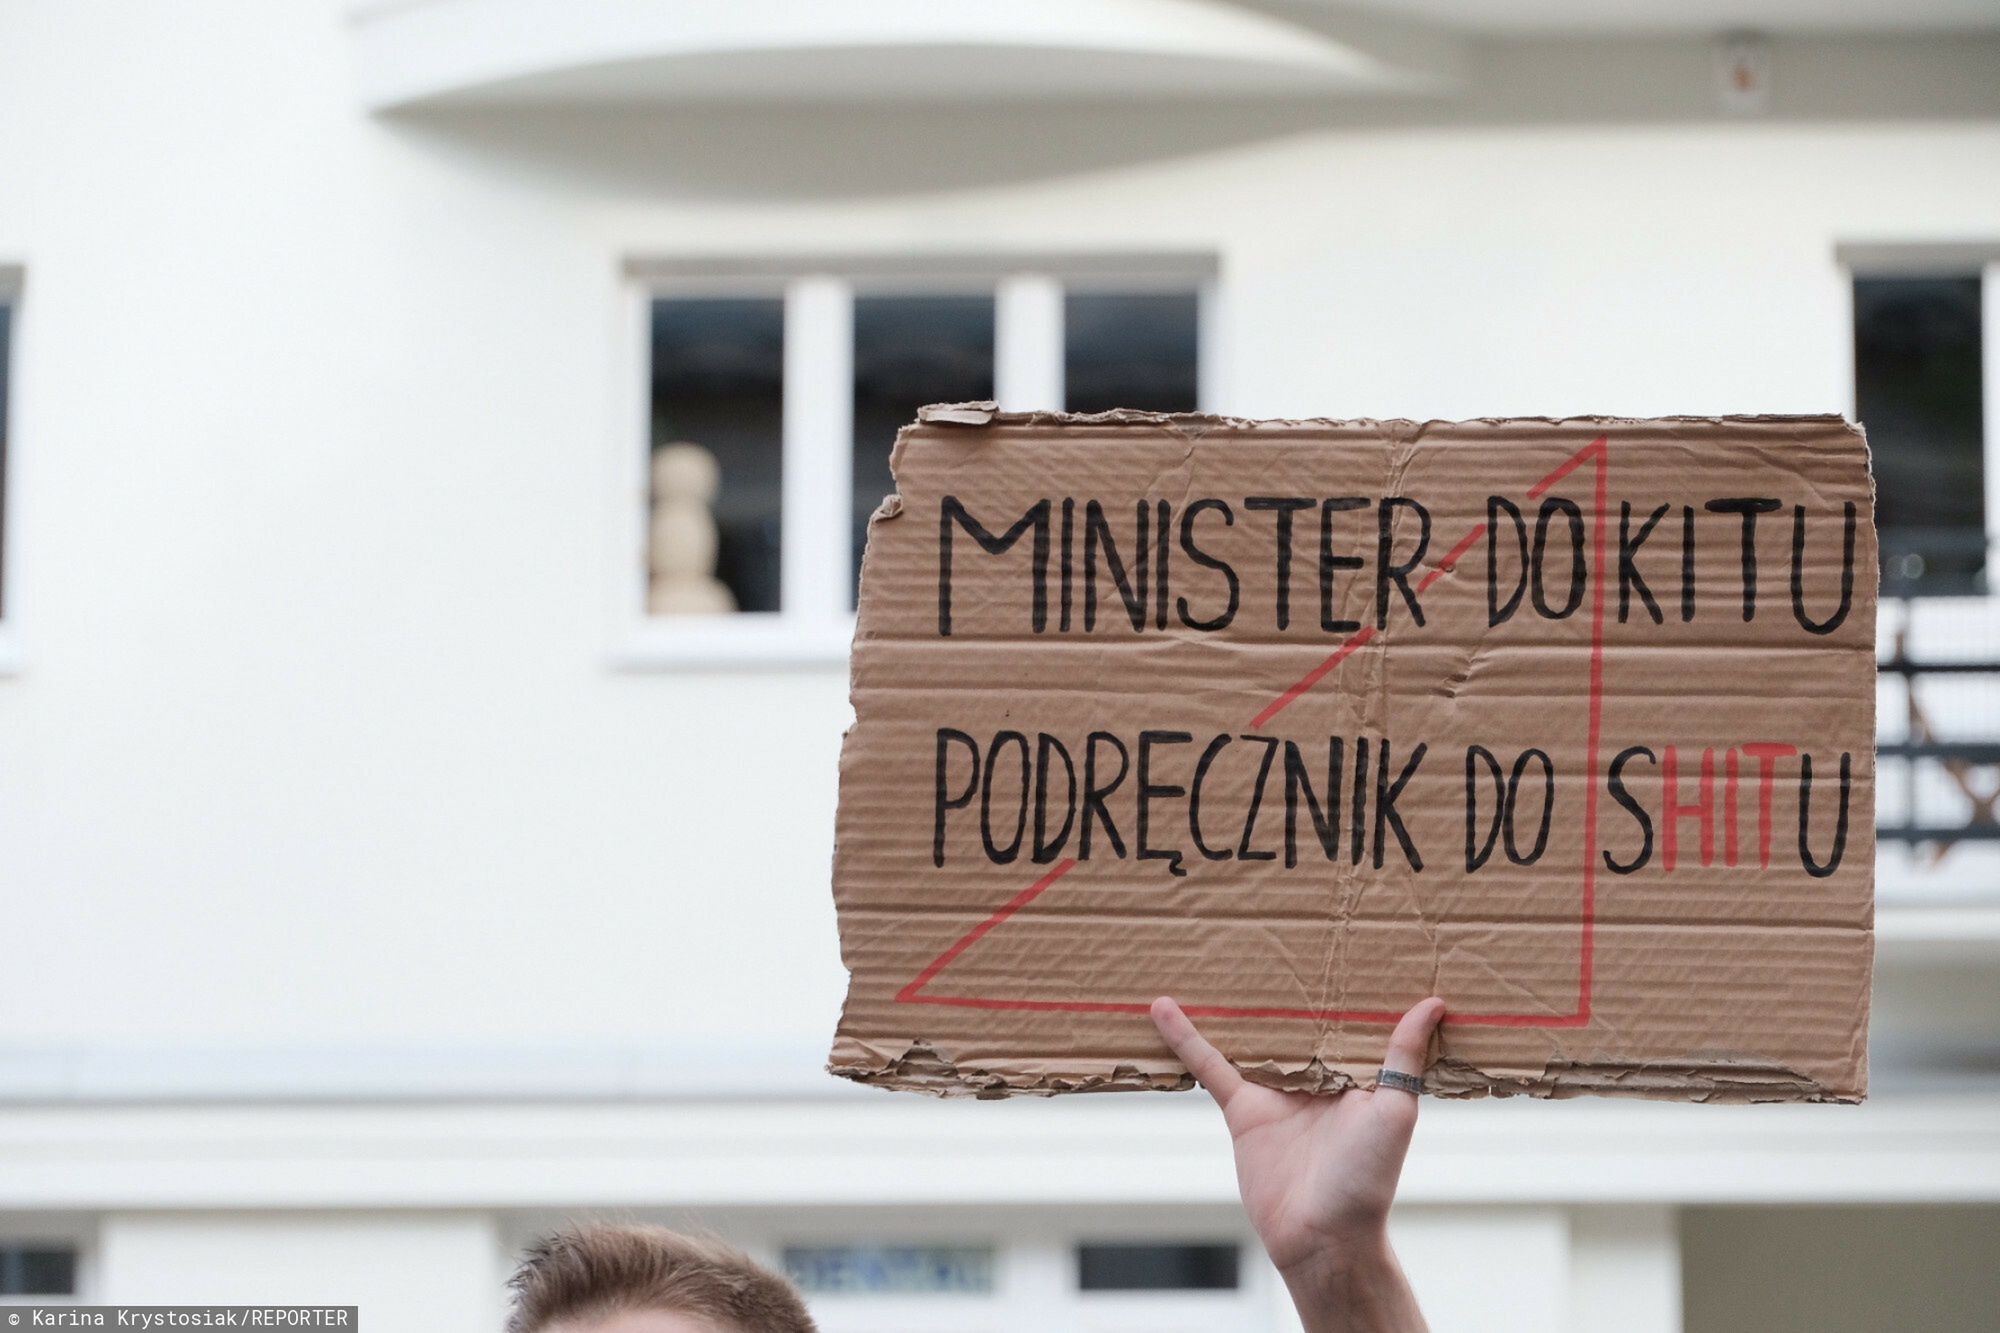 MINISTER DO KITU
PODRĘCZNIK DO SHITU
© Karina Krystosiak/REPORTER